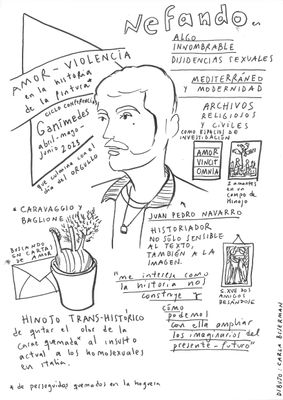 Nefando en
ALGO
INNOMBRABLE
DISIDENCIAS SEXUALES
MEDITERRÁNEO
Y MODERNIDAD
ARCHIVOS
RELIGIOSOS
Y CIVILES
COMO ESPACIOS DE
INVESTIGACIÓN
AMOR
VINCIT
OMNIA
2 amantes
en un
campo de
Hinojo
AMOR-VIOLENCIA
en la historia
de la pintura*
CICLO CONFERENCIAS
Ganímedes
abril-mayo-
junio 2023
que culmina con el
día del ORGULLO
* CARAVAGGIO y
BAGLIONE
BUSCANDO
EN CARTAS
DE AMOR
JUAN PEDRO NAVARRO
HISTORIADOR
NO SÓLO SENSIBLE
AL TEXTO,
TAMBIÉN A LA
IMAGEN.
"me interesa como
la historia nos
construye y
cómo
podemos
con ella ampliar
los imaginarios del
presente-futuro"
S. XVII DOS
AMIGOS
BESÁNDOSE
HINOJO TRANS-HISTÓRICO
de quitar el olor de la
carne quemada* al insulto
actual a los homosexuales
en Italia.
* de perseguidos quemados en la hoguera
DIBUJO: CARLA BOSERMAN